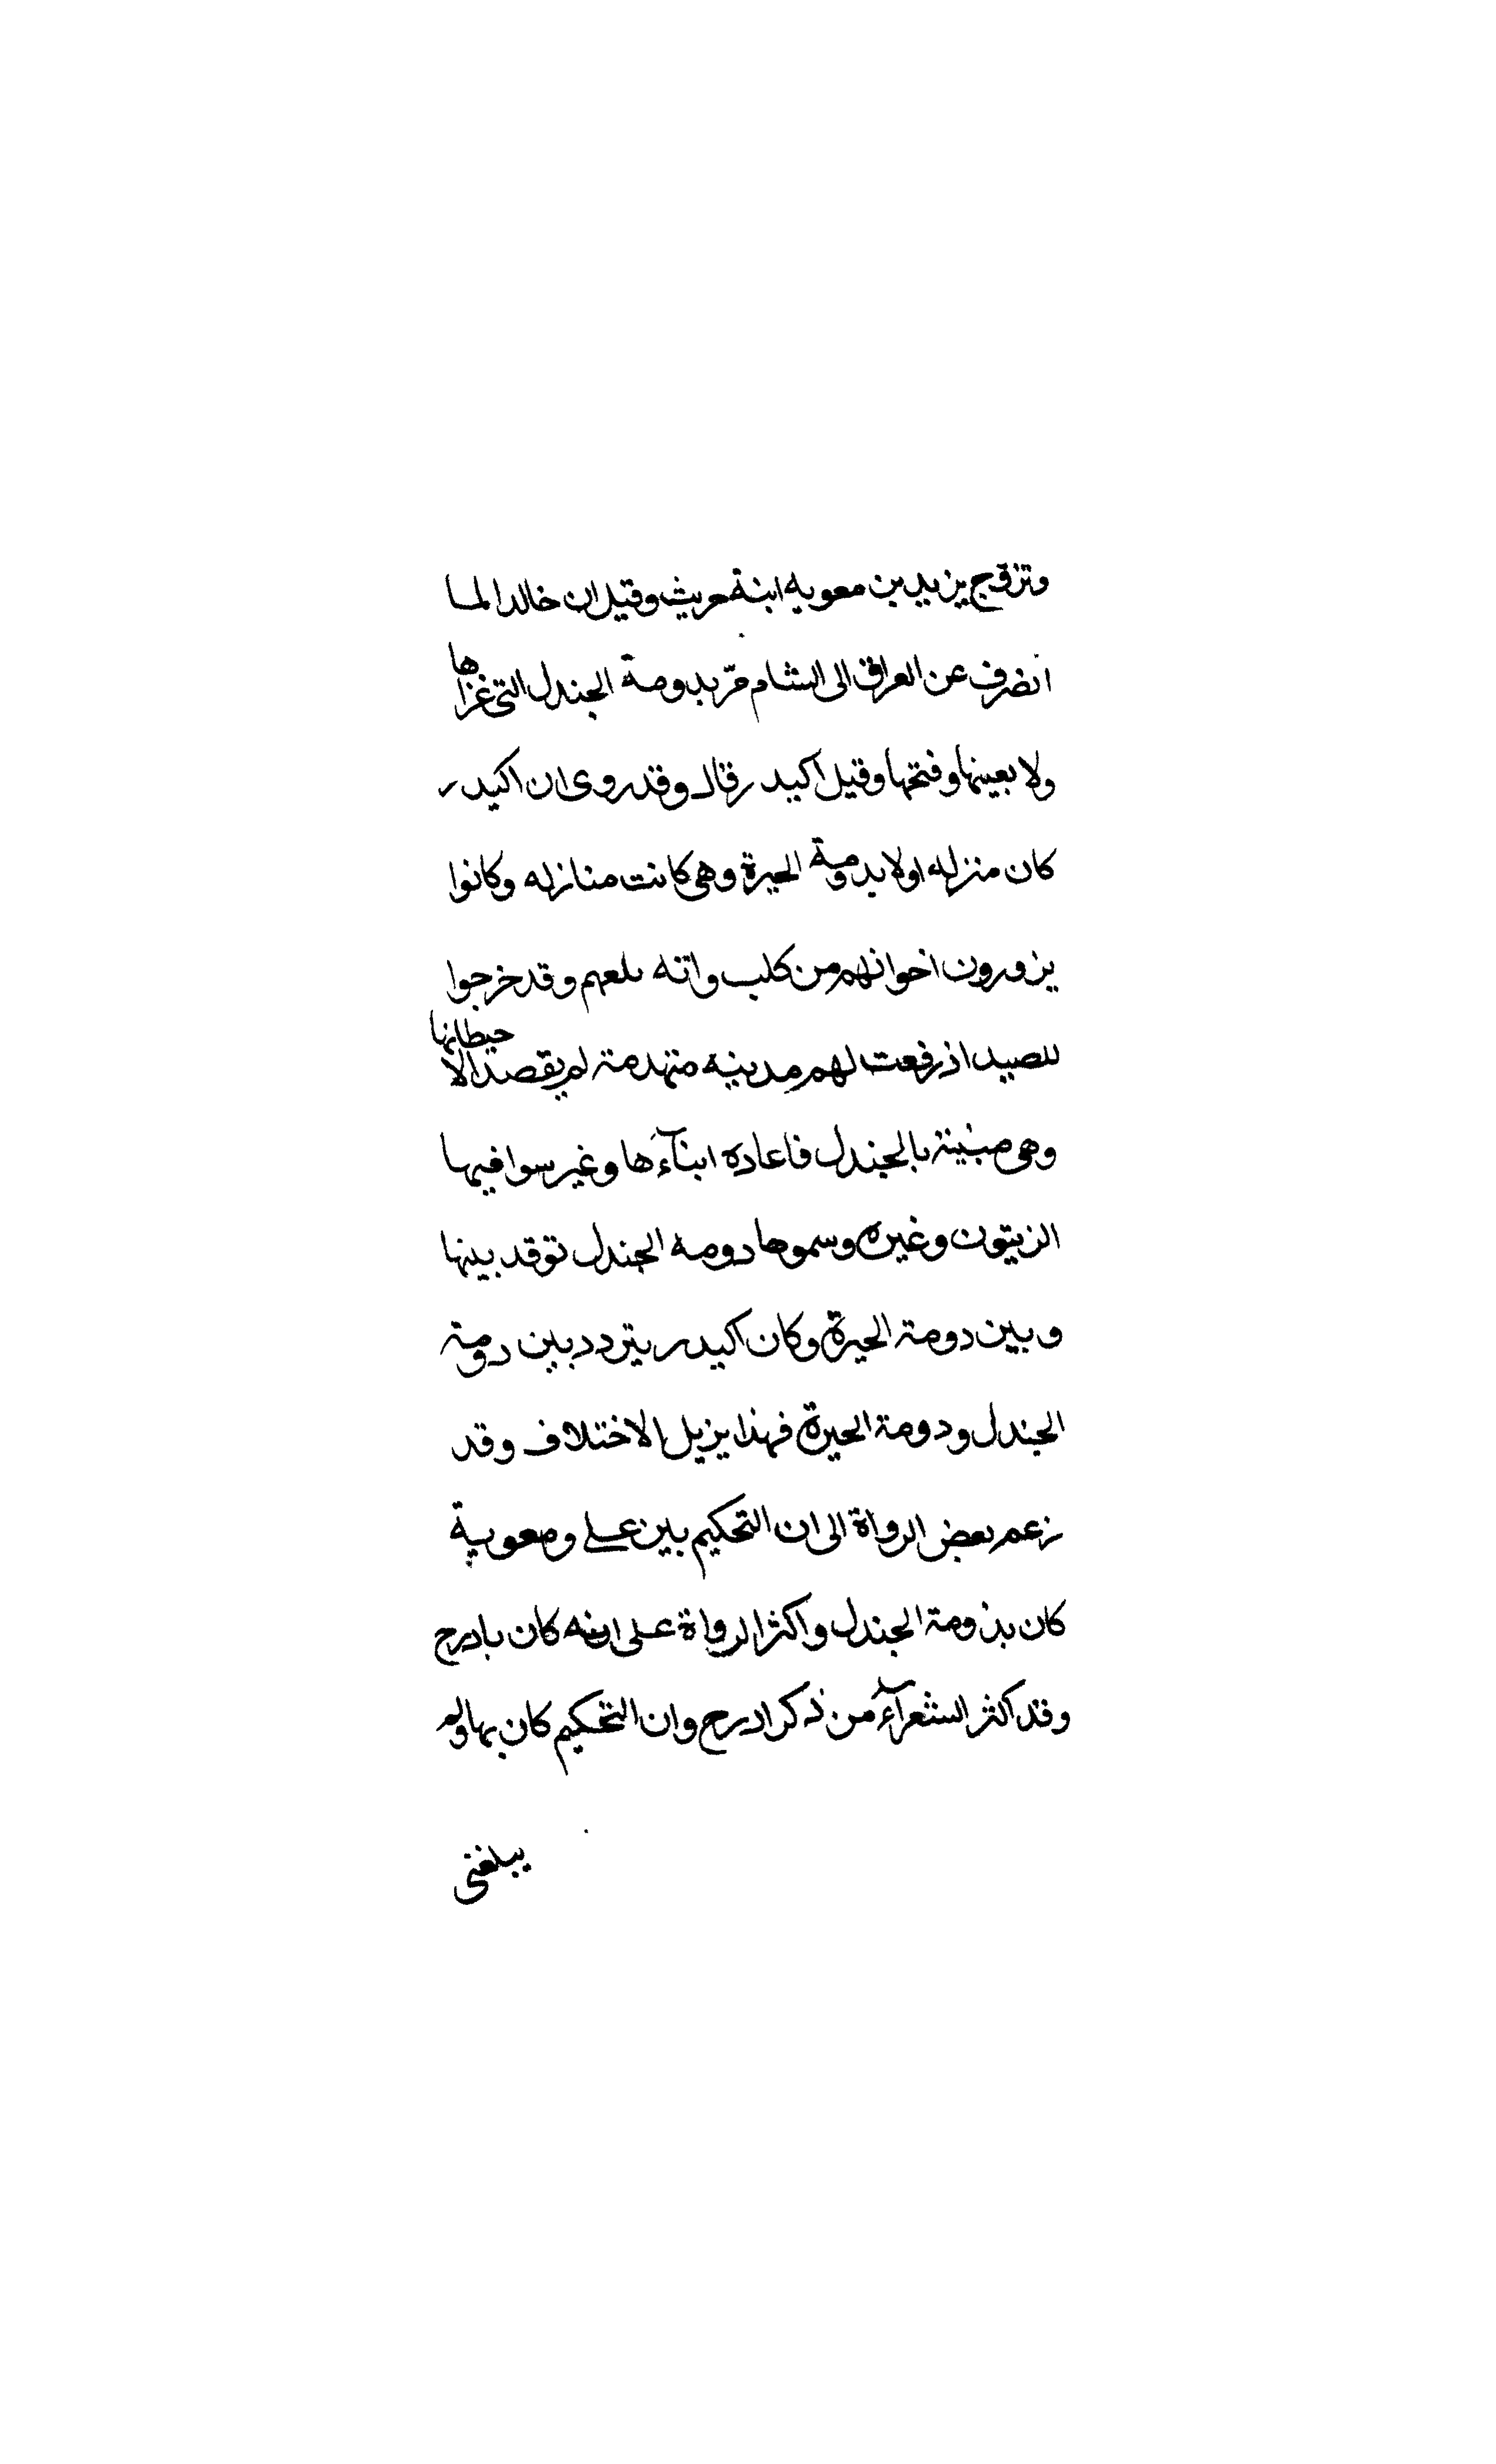 وتزوّج يزيد بن معويه ابنة حريث وقيل ان خالدا لما
انصرف عن العراق الى الشام مرّ بدومة الجندل التى غزاها
ولا بعينها وفتحها وقيل اكيدر قال وقد روى ان اكيدر
كان منزله اولا بدومة الحيرة وهى كانت منازله وكانوا
يزورون اخوانهم من كلب وانه لمعهم وقد خرجوا
للصيد اذ رفعت لهم مدينه متهدمة لم يقصد الا حيطانها
وهى مبنية بالجندل فاعاده ابنآءها وغيرسوا فيها
الزيتون وغيره وسموها دومه الجندل توقد بينها
وبين دومة الحيرة وكان اكيدر يتردد بين دومة
الجندل ودومة الحيرة فهذا يزيل الاختلاف وقد
زعم بعض الرواة الى ان التحكيم بين على ومعوية
كان بدومة الجندل واكثر الرواة على انه كان بادرج
وقد اكثر الشعرآء من ذكر ادرح وان التحكيم كان بها ولم
يبلغنى